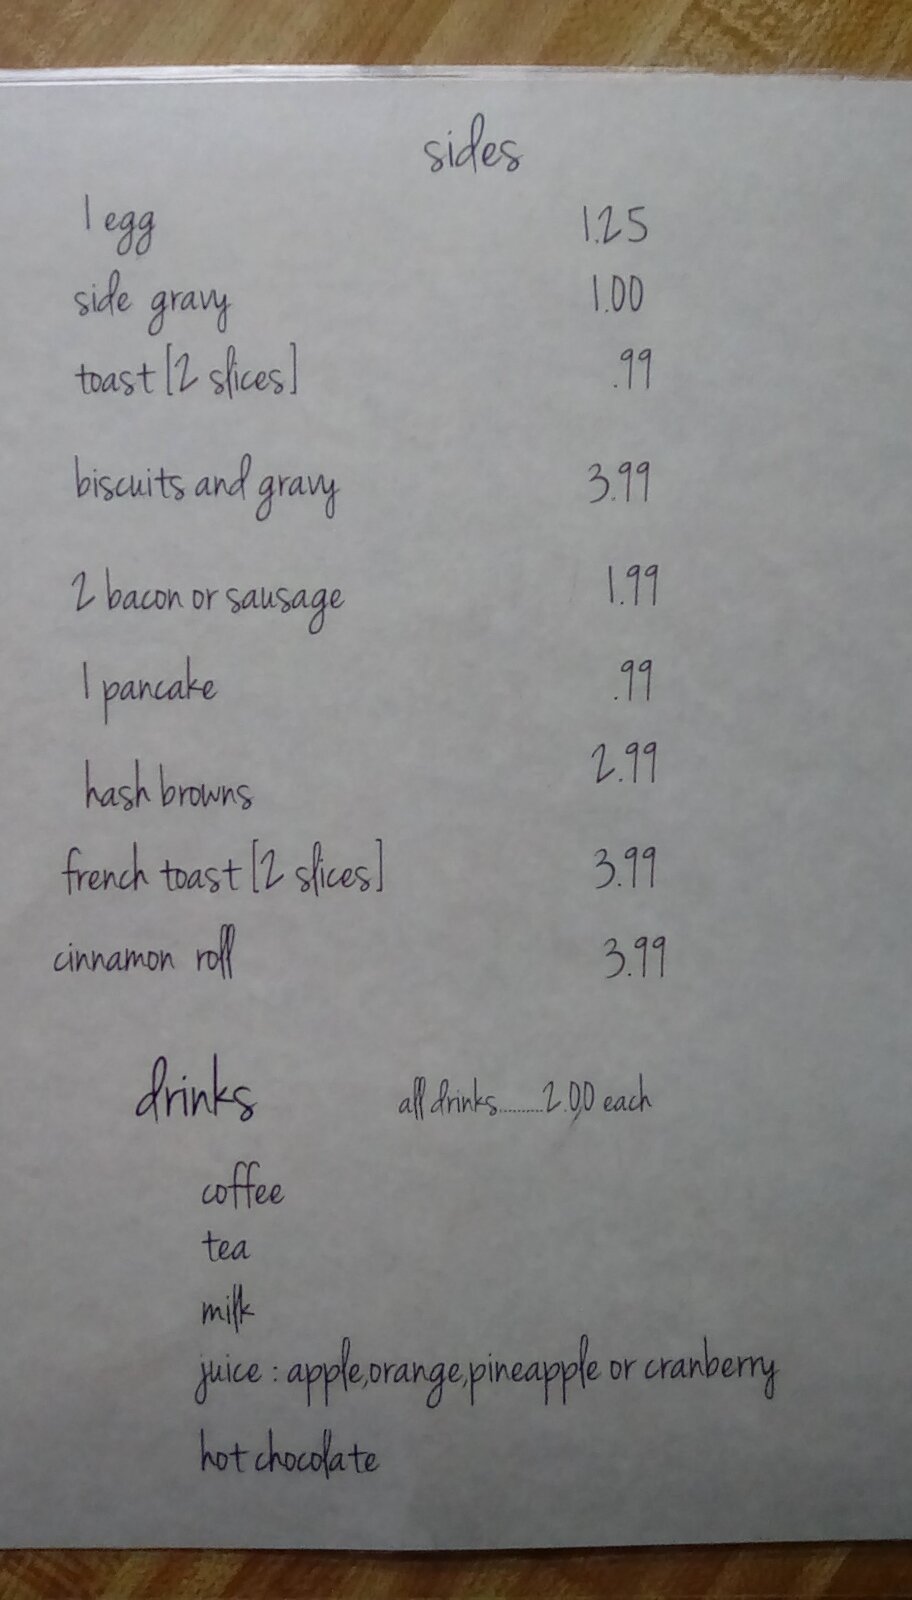 sides
1 egg 1.25
side gravy 1.00
toast [2 slices] .99
biscuits and gravy 3.99
2 bacon or sausage 1.99
1 pancake .99
hash browns 2.99
french toast [2 slices] 3.99
cinnamon roll 3.99
drinks all drinks..........2.00 each
coffee
tea
milk
juice : apple,orange,pineapple or cranberry
hot chocolate